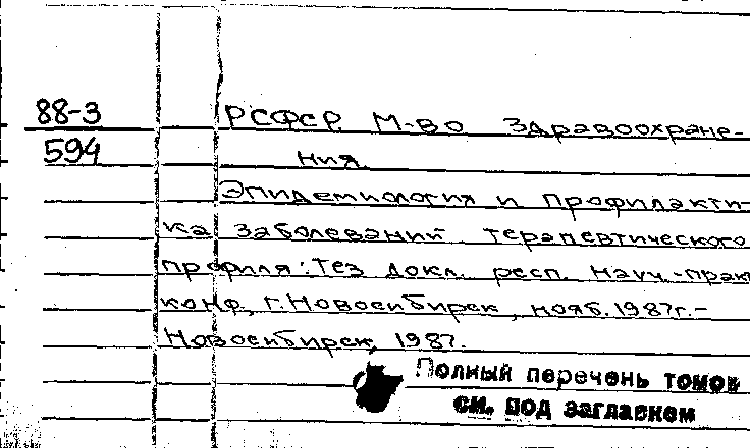 88-3 РСФСР. М-во здравоохране-
594 ния.
Эпидемиология и профилакти-
ка заболеваний терапевтического
профиля: Тез. докл. респ. науч.-прак
конф., г. Новосибирск, нояб. 1987г.-
Новосибирск, 1987.
Полный перечень томов
см. под заглавием